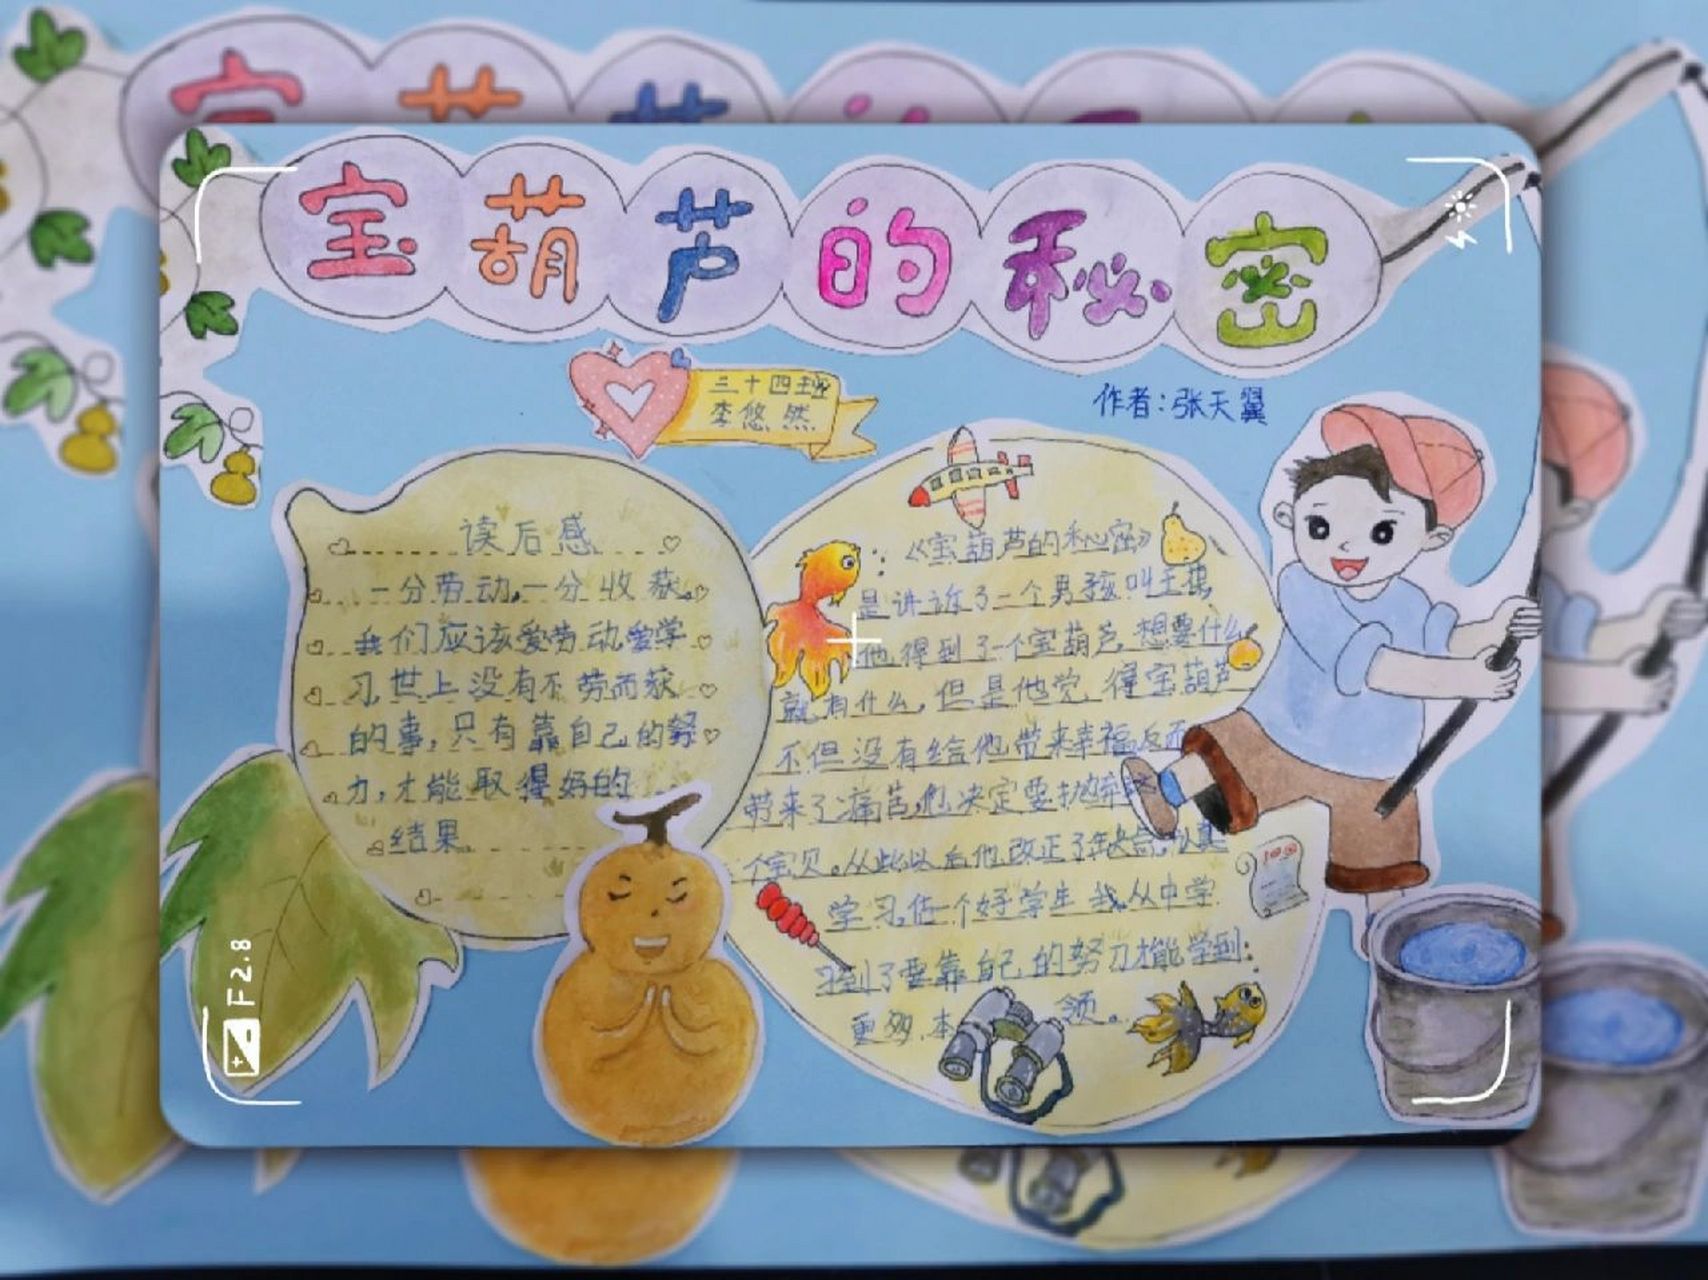 宝葫芦的秘密
三十四班
李悠然
作者:张天翼
读后感
一分劳动,一分收获。
我们应该爱劳动爱学
习,世上没有不劳而获
的事,只有靠自己的努
力,才能取得好的
结果。
《宝葫芦的秘密》
是讲诉了一个男孩叫王葆,
他得到了一个宝葫芦,想要什么
就有什么,但是他觉得宝葫芦
不但没有给他带来幸福反而
带来了痛苦,他决定要抛弃这
个宝贝。从此以后他改正了缺点,认真
学习,做一个好学生,我从中学
习到了要靠自己的努力才能学到
更多本领。
F2.8